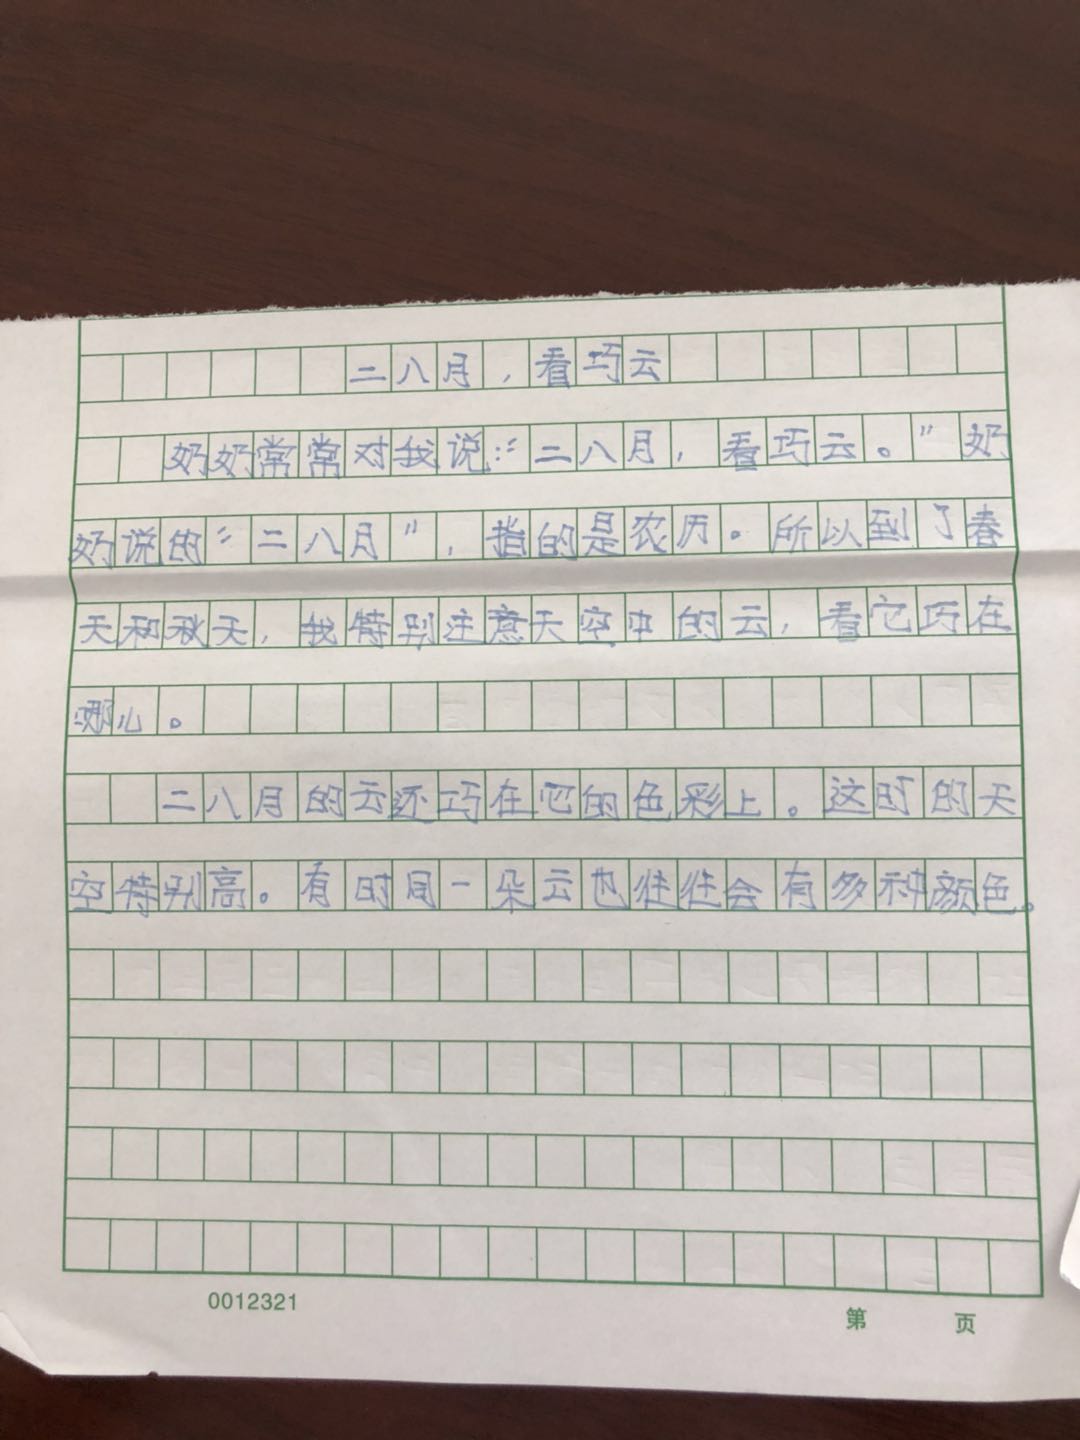 二八月，看巧云
奶奶常常对我说：“二八月，看巧云。”奶
奶说的“二八月”，指的是农历。所以到了春
天和秋天，我特别注意天空中的云，看它巧在
哪儿。
二八月的云还巧在它的色彩上。这时的天
空特别高。有时同一朵云也往往会有多种颜色。
0012321
第 页